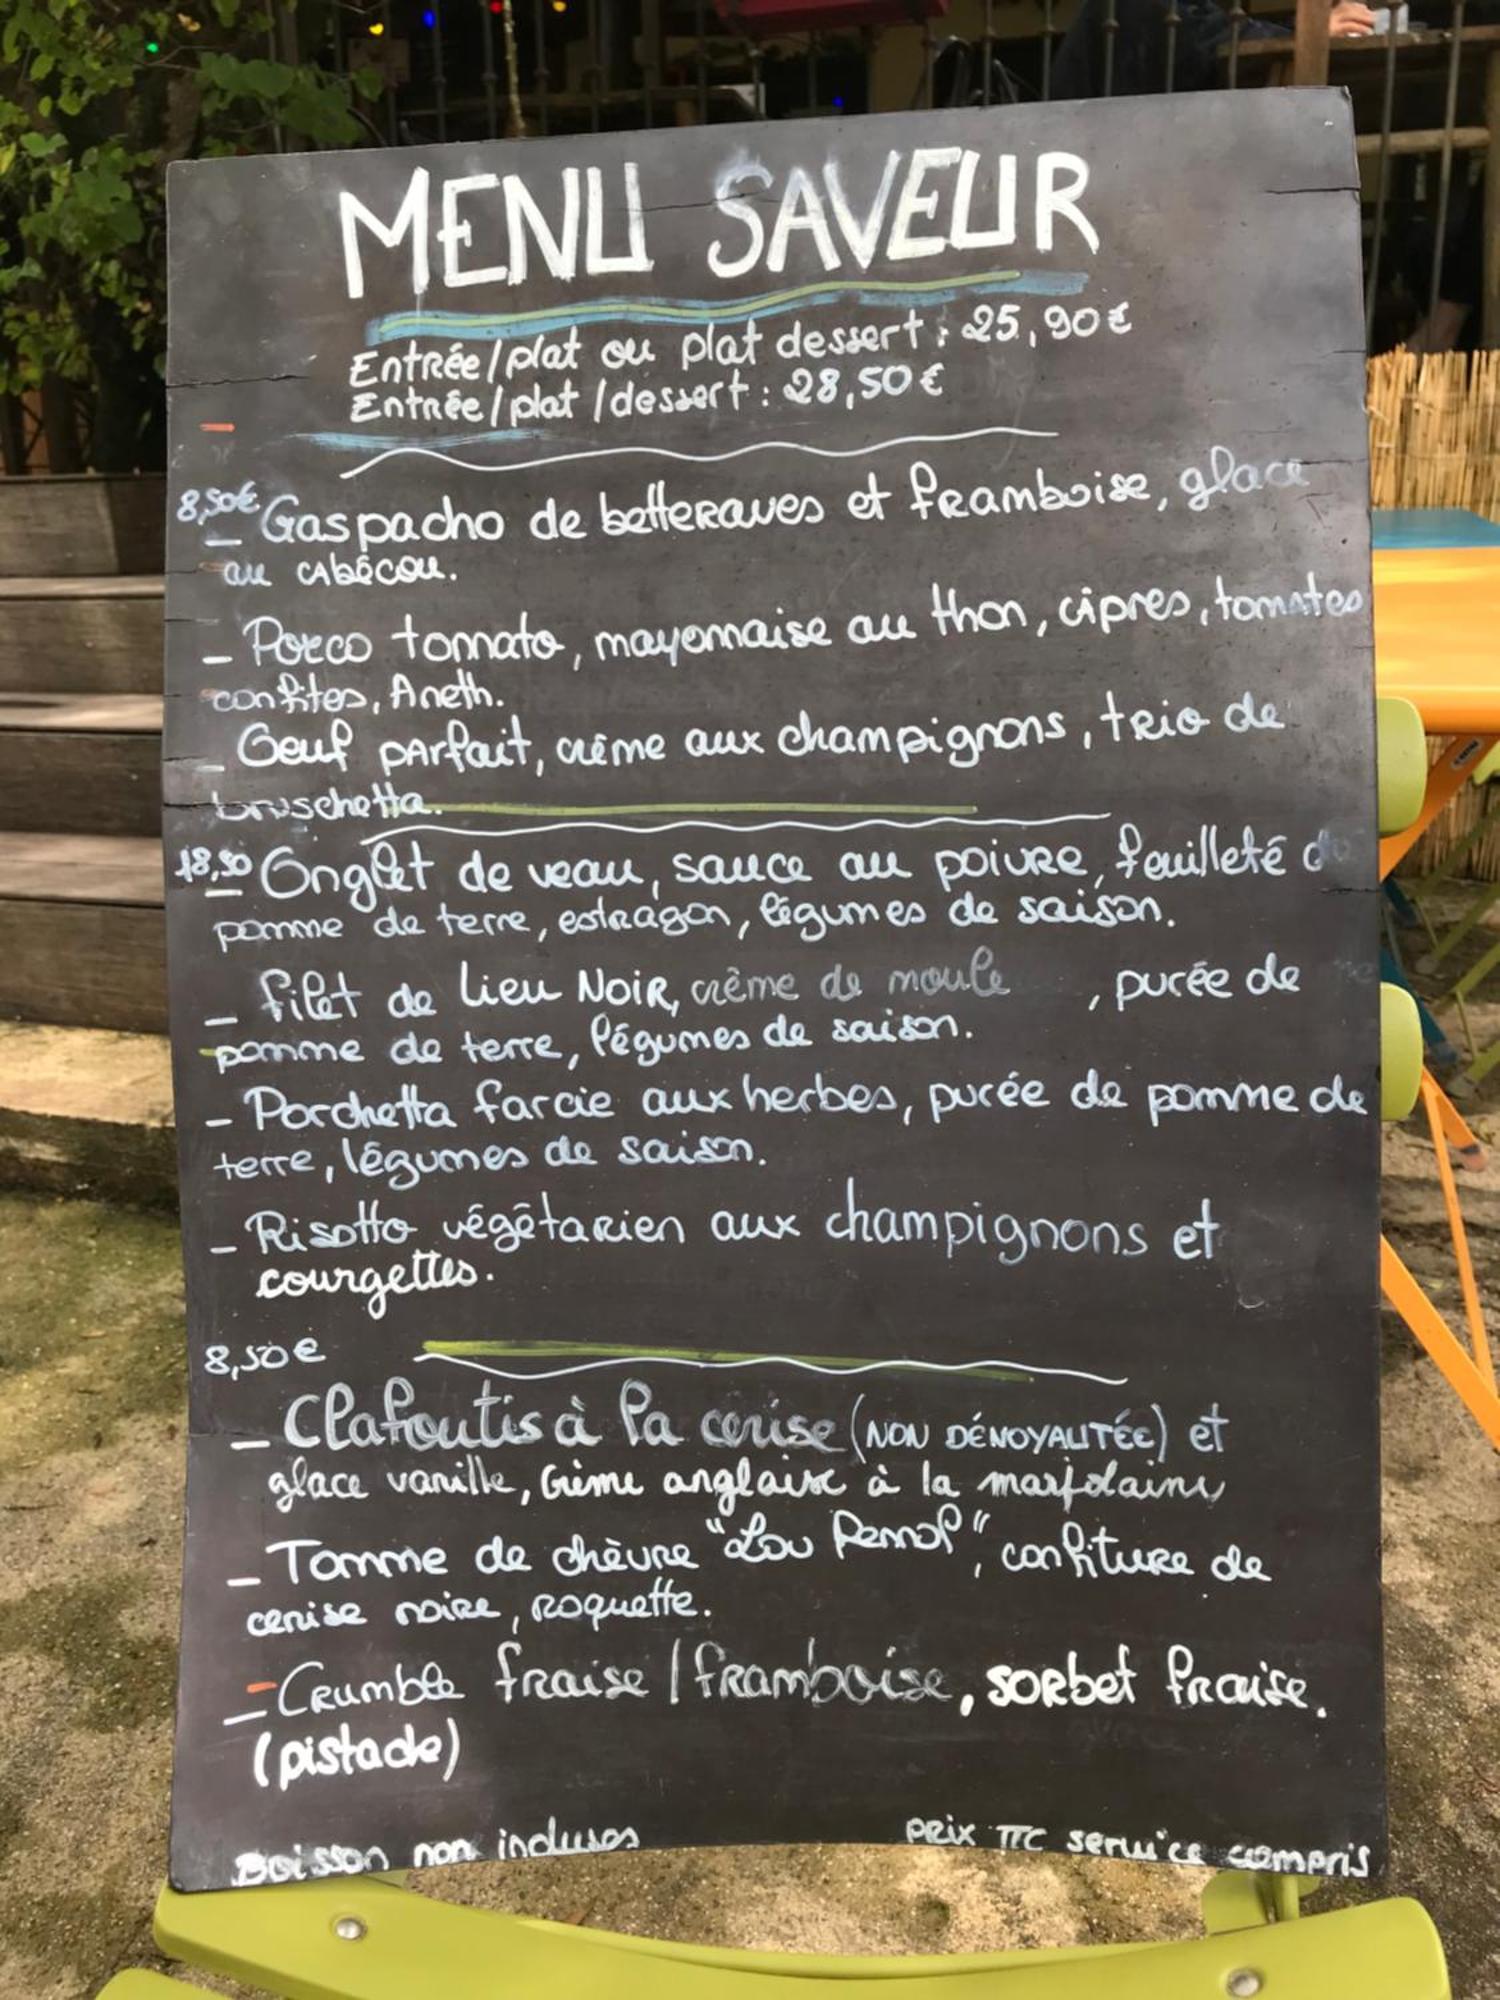 MENU SAVEUR
Entrée/plat ou plat dessert : 25,90€
Entrée/plat/dessert : 28,50€
8,50€ Gaspacho de betteraves et framboise, glace
au cabécou.
_ Porco tomato, mayonnaise au thon, cipres, tomates
confites, Aneth.
_ Oeuf parfait, crème aux champignons, trio de
bruschetta.
18,50 Onglet de veau, sauce au poivre, feuilleté de
pomme de terre, estragon, légumes de saison.
_ filet de Lieu Noir, crème de moule , purée de
pomme de terre, légumes de saison.
_ Porchetta farcie aux herbes, purée de pomme de
terre, légumes de saison.
_ Risotto végétarien aux champignons et
courgettes.
8,50€
_ Clafoutis à la cerise (NON DÉNOYALITÉE) et
glace vanille, Crème anglaise à la marjolaine
_ Tomme de chèvre "Lou Pennol", confiture de
cerise noire, roquette.
_ Crumble fraise/framboise, sorbet fraise.
(pistache)
Boisson non incluses
prix TTC service compris